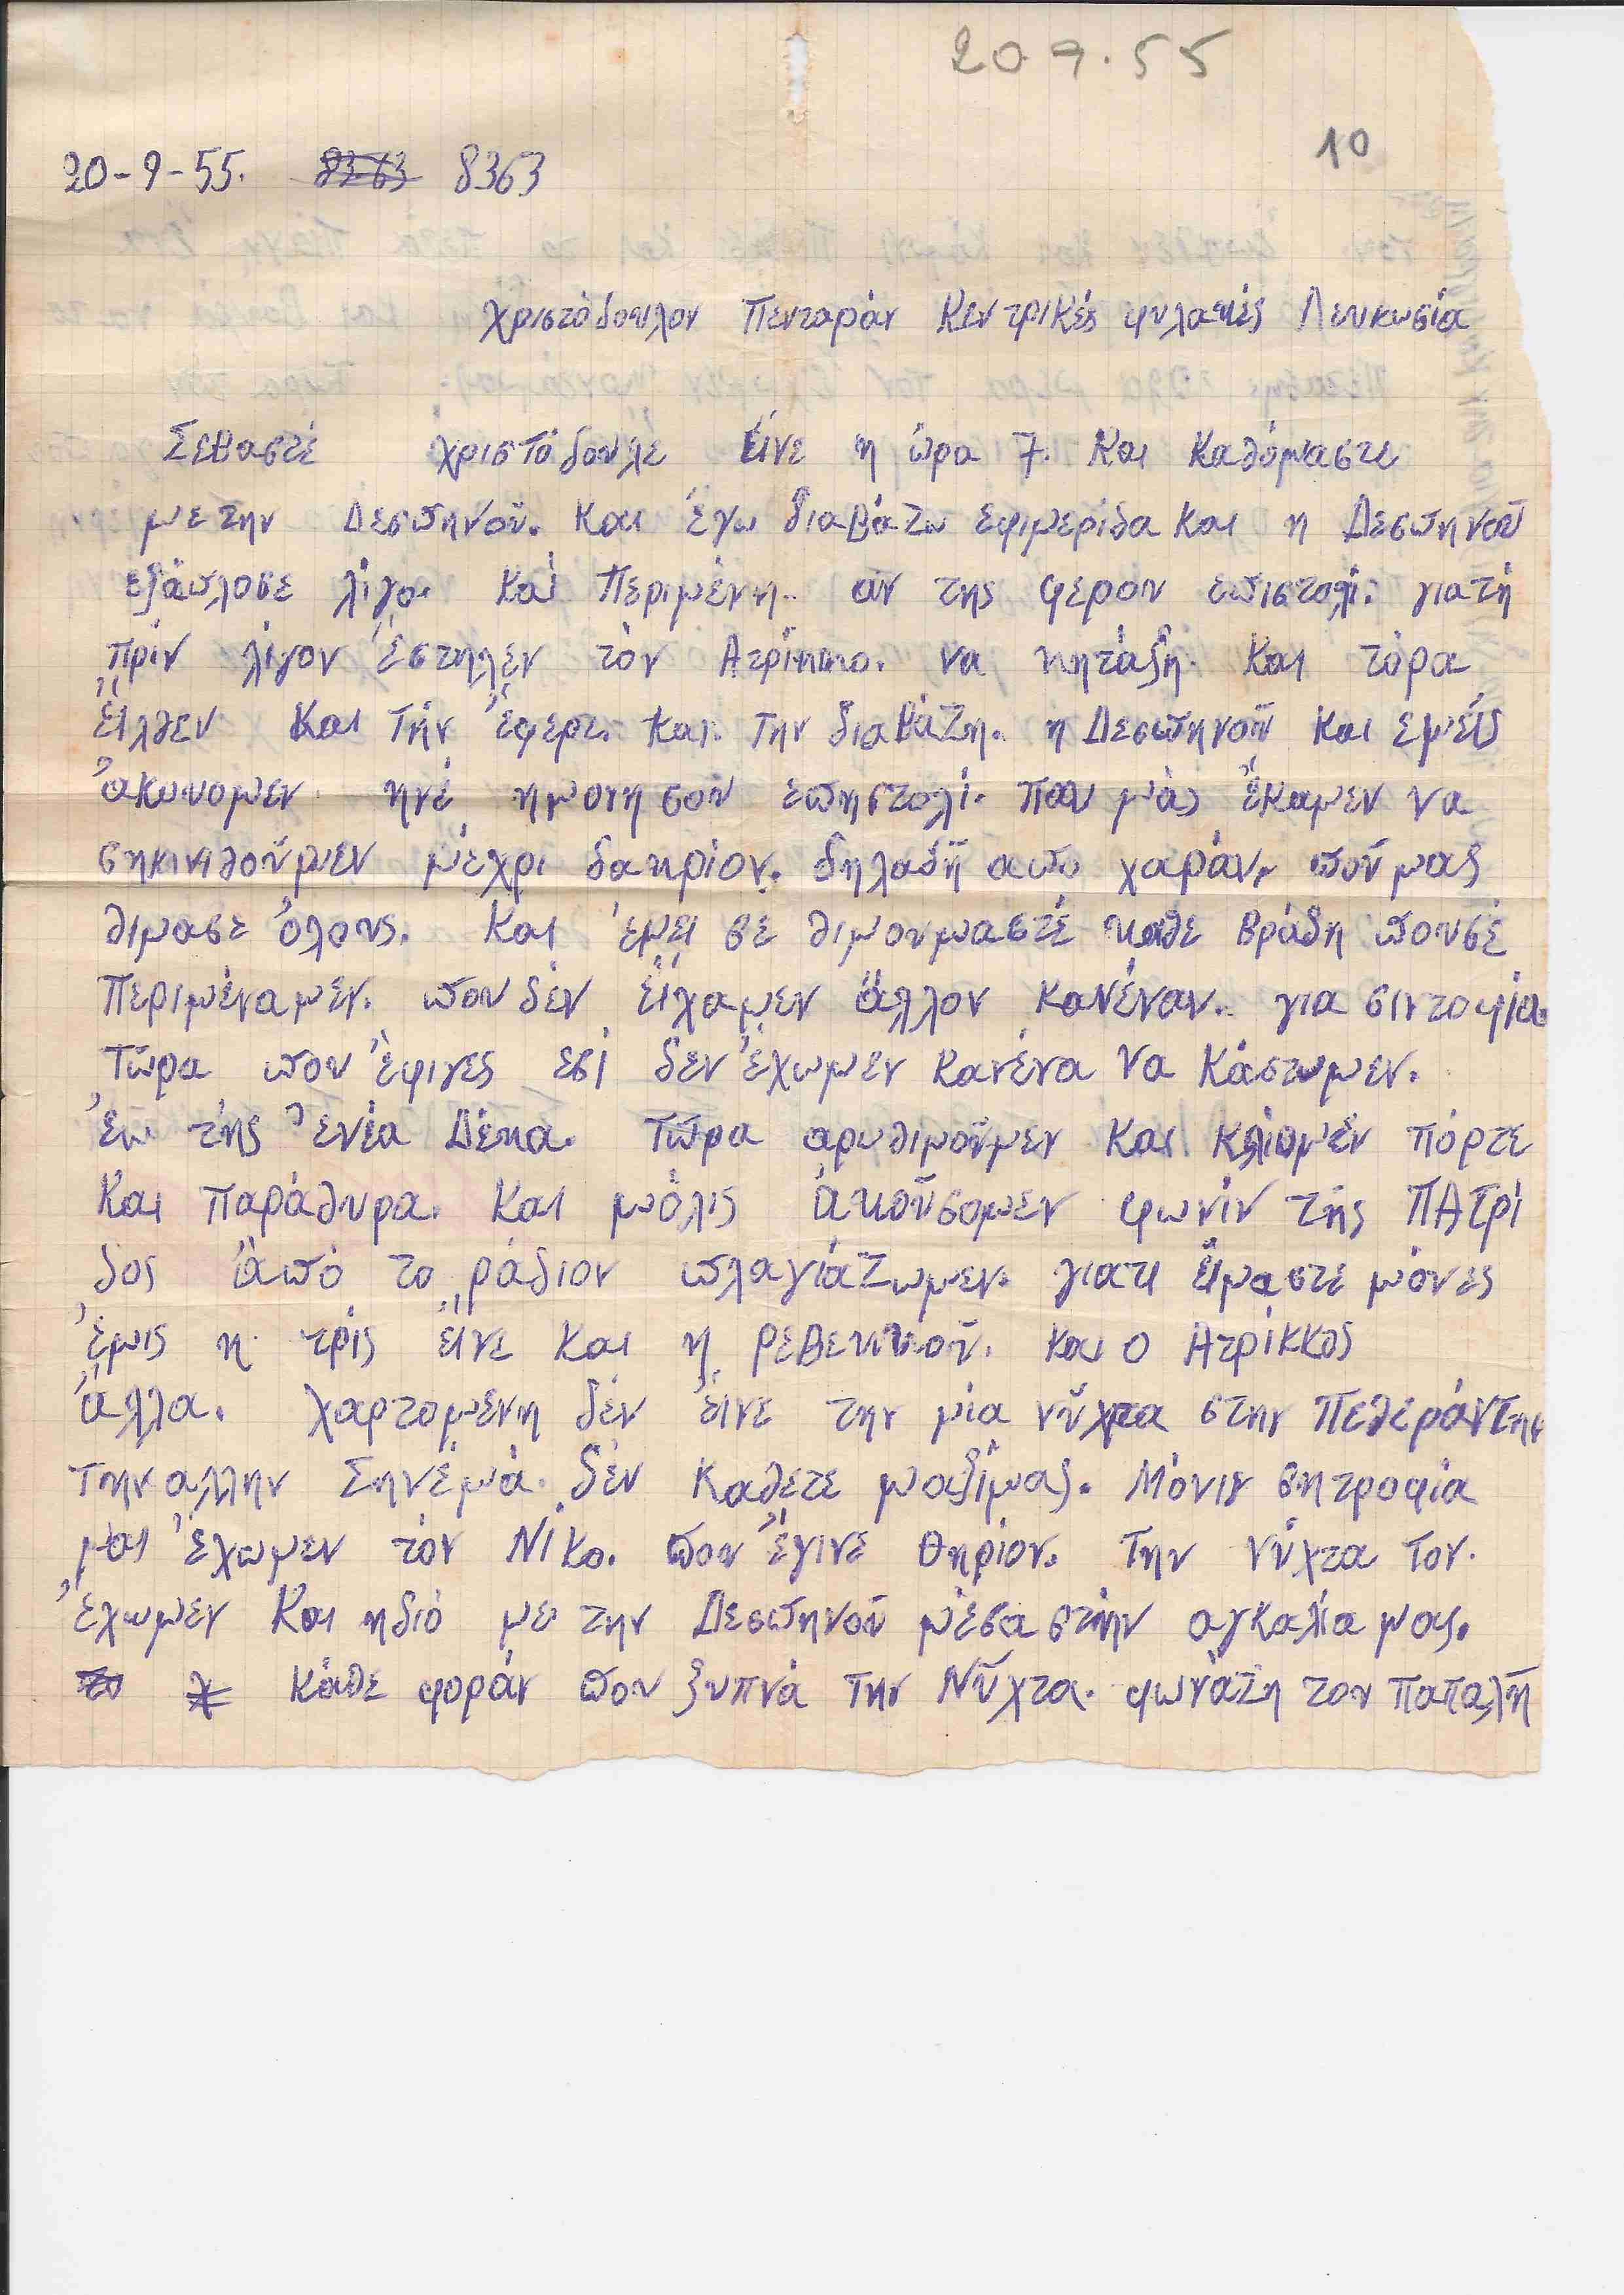 20 9. 55
10
20-9-55. 8363 8363
Χριστόδουλον Πενταράν Κεντρικές φυλακές Λευκωσία
Σεβαστέ Χριστόδουλε Είνε η ώρα 7. Και Καθόμαστε
με την Δεσπηνού. Και έγω διαβάζω εφιμερίδα Και η Δεσπηνού
εξάπλοσε λίγο. Καί Περιμένη. αν της φερουν επιστολί. γιατή
πρίν λίγον έστηλεν τόν Ατρίκκο. να κητάξη. Και τόρα
είλθεν Και Τήν έφερε. Και. Την διαβάζη. η Δεσπηνού Και εμείς
ακουομεν ηνέ ημονησου επηστολί. που μάς έκαμεν να
σηκινιθούμεν μέχρι δακρίον. δηλαδή απο χαράν, πού μας
θιμασε όλους. Και έμει σε θιμουμαστέ καθε βράδη πουσέ
Περιμέναμεν. που δέν είχαμεν άλλον Κανέναν. για σιντοφία.
Τώρα που έφιγες εσί δεν έχωμεν Κανένα Να Κάστωμεν.
έω τής ενέα Δέκα. Τώρα αρυθιμούμεν Και Κλίομεν πόρτε
Και Παράθυρα. Και μόλις ακούσομεν φωνίν τής ΠΑτρί
δος άπό το ράδιον πλαγιάζωμεν. γιατι είμαστε μόνες
έμις η τρίς είνε Και η ρεβεκκού. Και ο Ατρίκκος
άλλα. χαρτομένη δέν είνε την μία νύχτα στην Πεθεράντης
την αλλην Σηνέμά. δέν Καθετε μαζίμας. Μόνιν σητροφία
μας έχωμεν τόν Νίκο. που έγινε θηρίον. Την νύχτα τον.
έχωμεν Και ηδιό με την Δεσπηνού μέσα στήν αγκαλία μας.
Κάθε φοράν που ξυπνά την Νύχτα. φωνάζη τον παπαλή